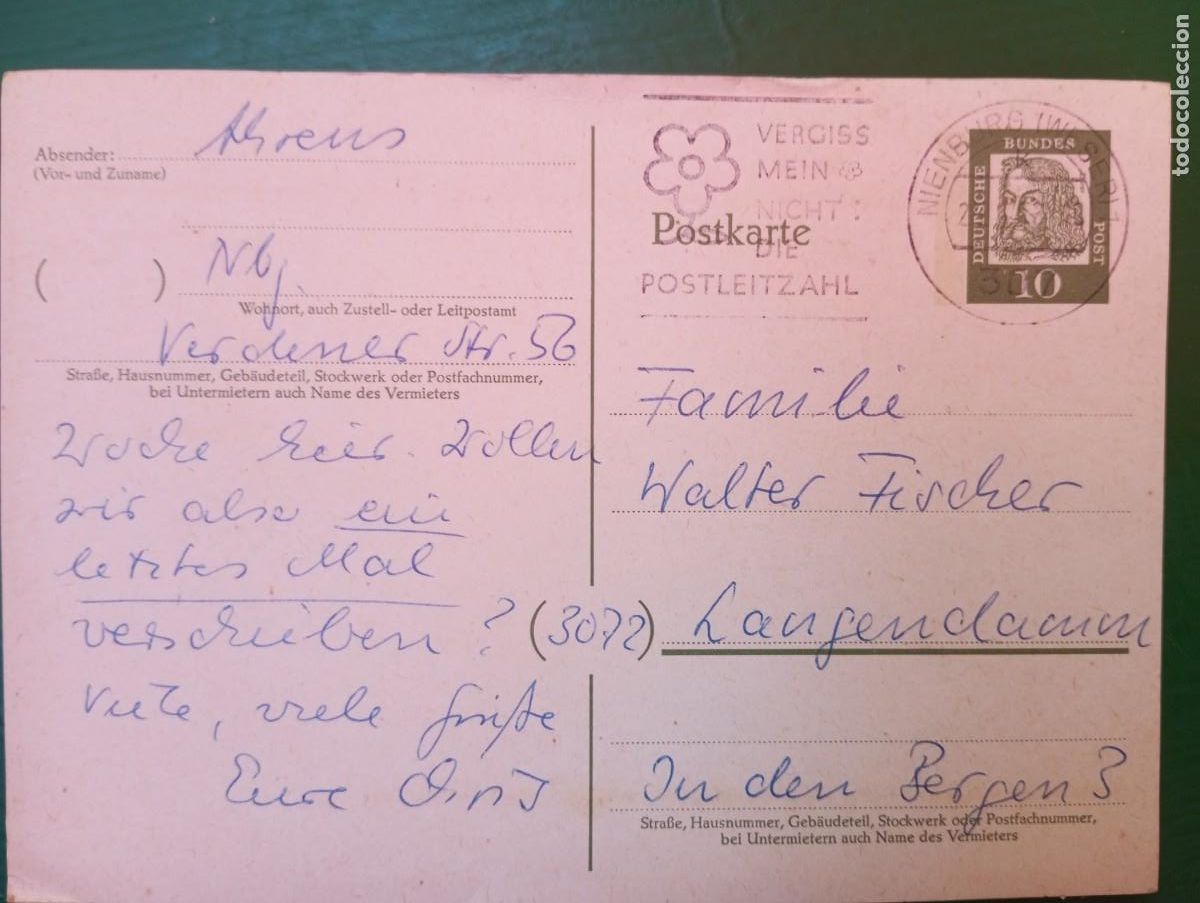 Absender:
(Vor- und Zuname)
Ahrens
( )
Nbg.
Wohnort, auch Zustell- oder Leitpostamt
Verdener Str. 56
Straße, Hausnummer, Gebäudeteil, Stockwerk oder Postfachnummer,
bei Untermietern auch Name des Vermieters
Woche hier. Wollen
wir also ein
letztes Mal
verschieben?
Viele, viele Grüße
Eure
VERGISS
MEIN
NICHT:
DIE
POSTLEITZAHL
Postkarte
NIENBURG (WESER) 1
307
DEUTSCHE
BUNDES
POST
10
Familie
Walter Fischer
(3072) Langendamm
In den Bergen 3
Straße, Hausnummer, Gebäudeteil, Stockwerk oder Postfachnummer,
bei Untermietern auch Name des Vermieters
todocoleccion